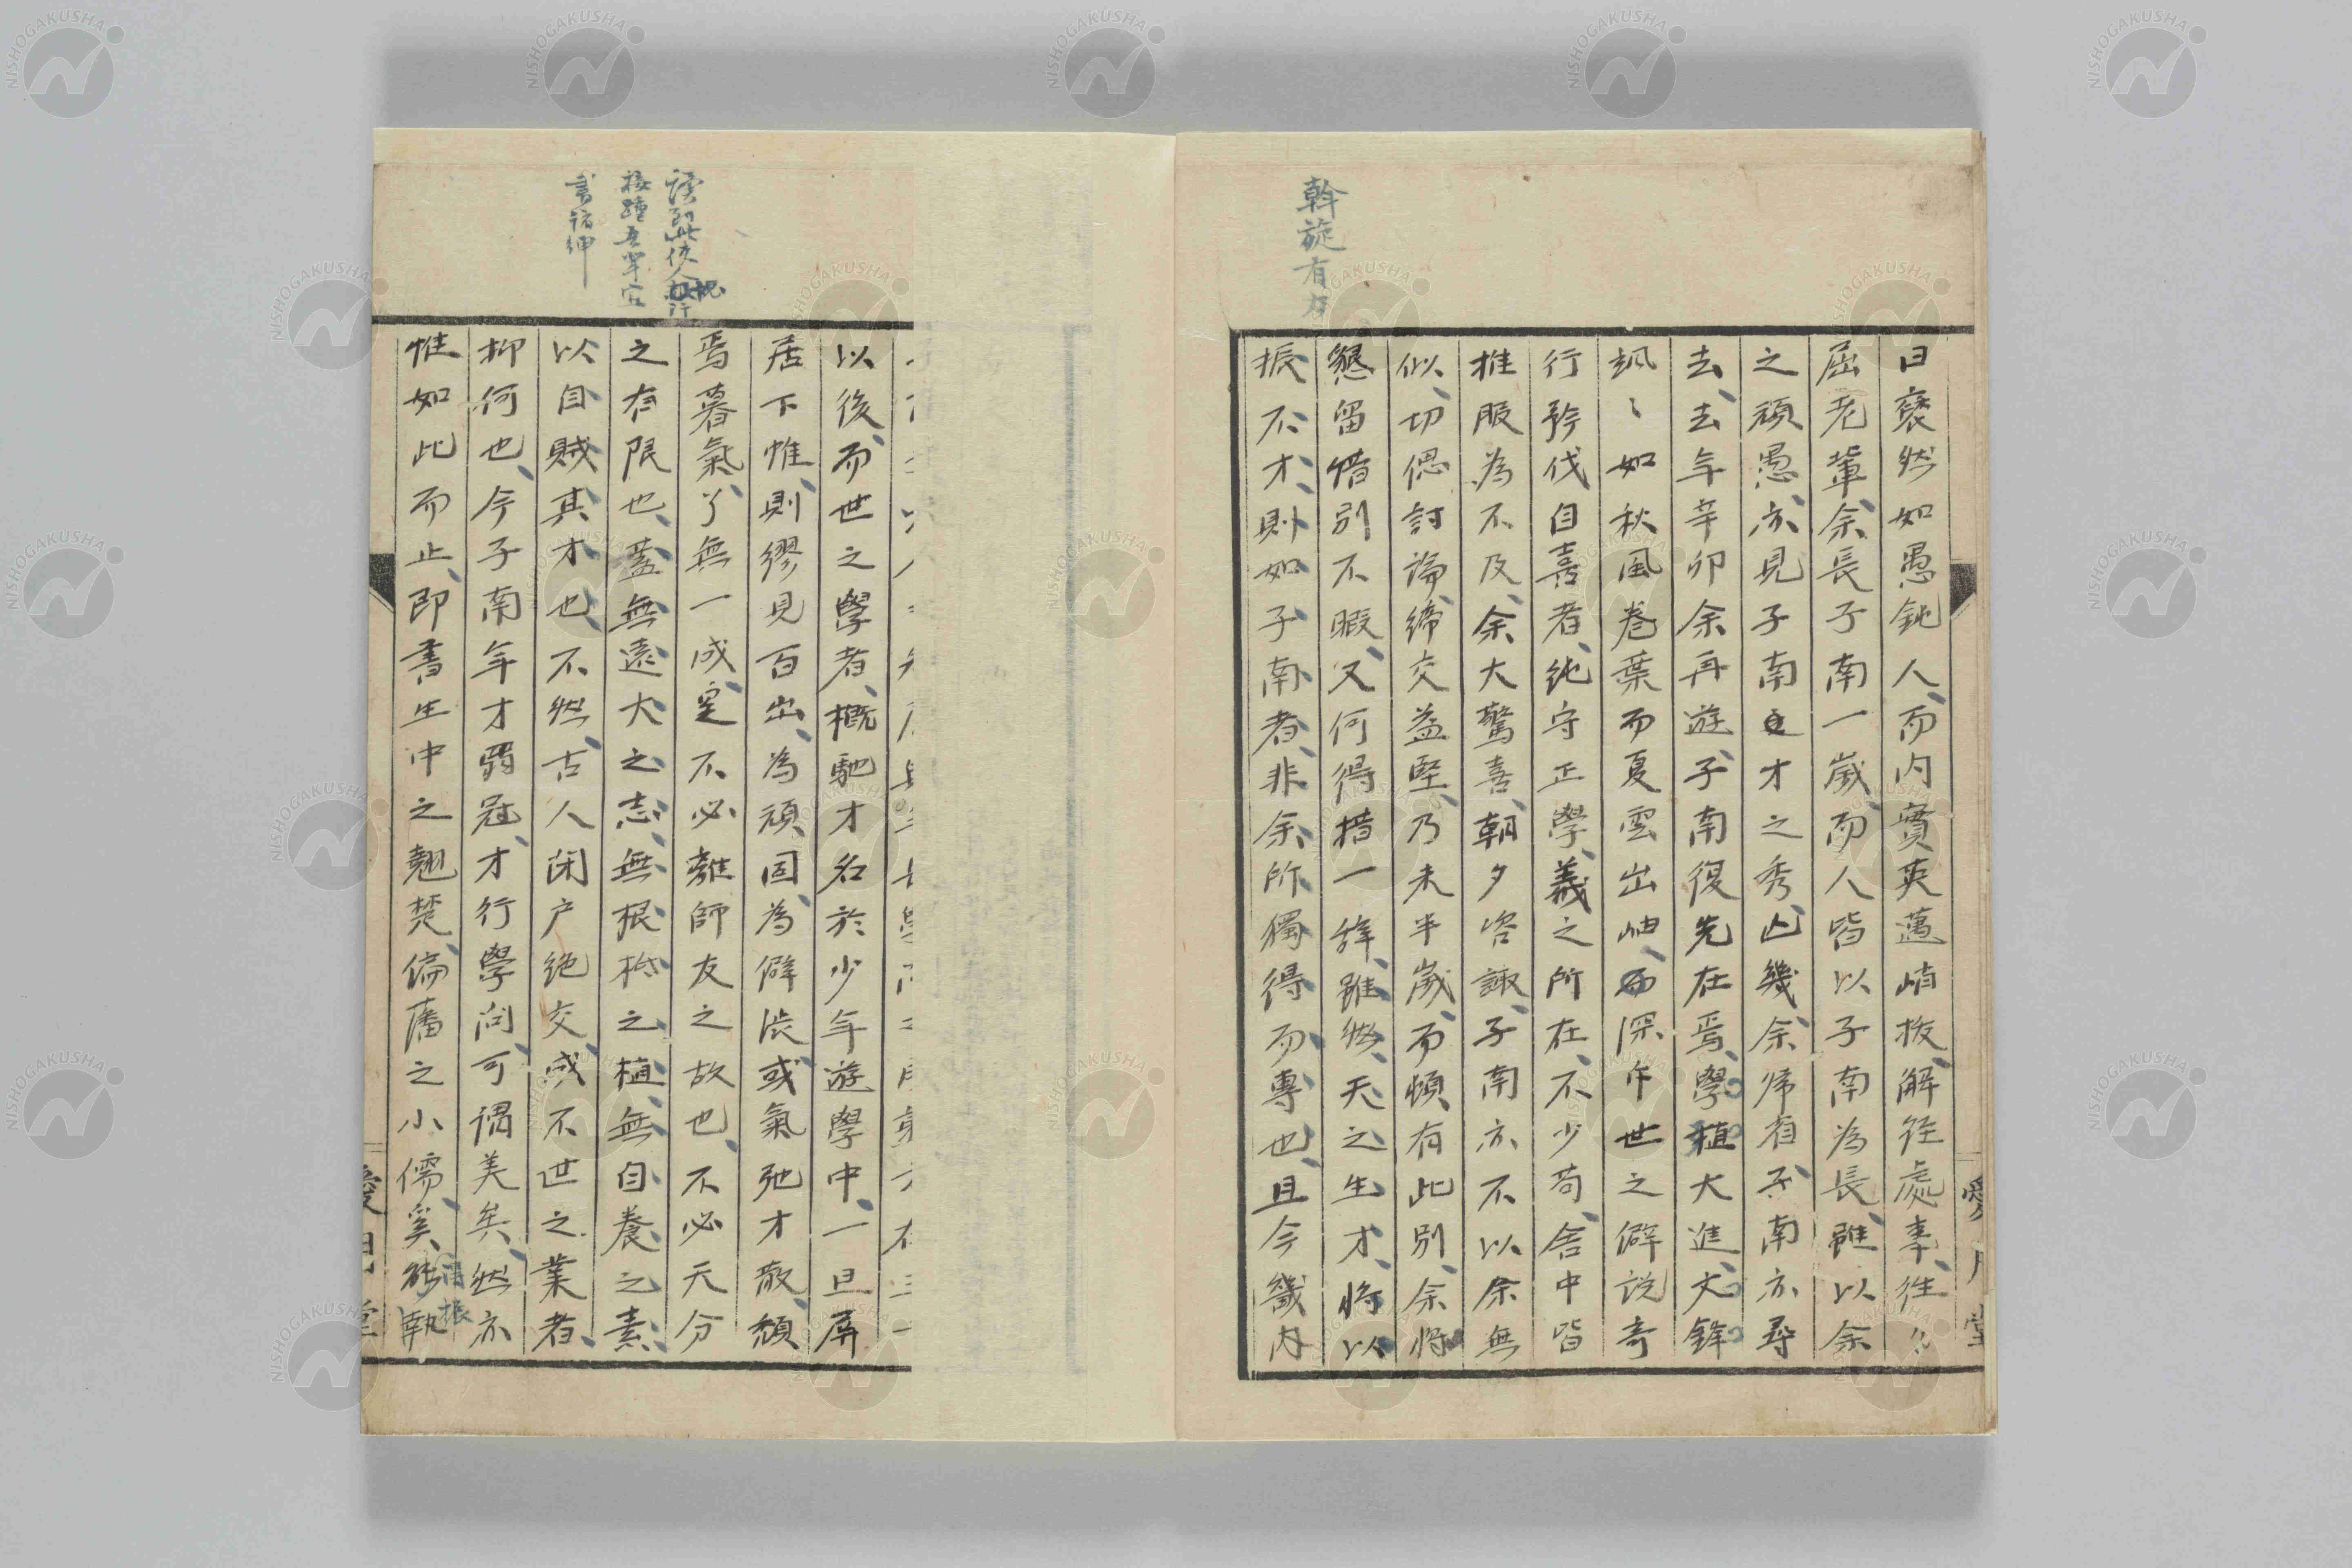 斡旋有力
日褎然如愚鈍人而内實英邁峭拔解經處事往〻
屈老輩余長子南一歲而人皆以子南為長雖以余
之頑愚亦見子南之才之秀也幾余歸省子南亦尋
去去年辛卯余再遊子南復先在焉學植大進文鋒
颯〻如秋風卷葉而夏雲出岫而深斥世之僻説奇
行矜伐自喜者純守正學義之所在不少苟舍中皆
推服為不及余大驚喜朝夕咨諏子南亦不以余無
似切偲討論締交益堅乃未半歲而頓有此別余將
懇留惜別不暇又何得措一辭雖然天之生才將以
振不才則如子南者非余所獨得而專也且今畿内
書諸紳
以後而世之學者概馳才名於少年遊學中一旦屏
居下帷則繆見百出為頑固為僻陋或氣弛才散頽
焉暮氣了無一成是不必離師友之故也不必天分
之有限也蓋無遠大之志無根柢之植無自養之素
以自賊其才也不然古人閉户絶交成不世之業者
抑何也今子南年才弱冠才行學問可謂美矣然亦
惟如此而止即書生中之翹楚偏藩之小儒奚能執